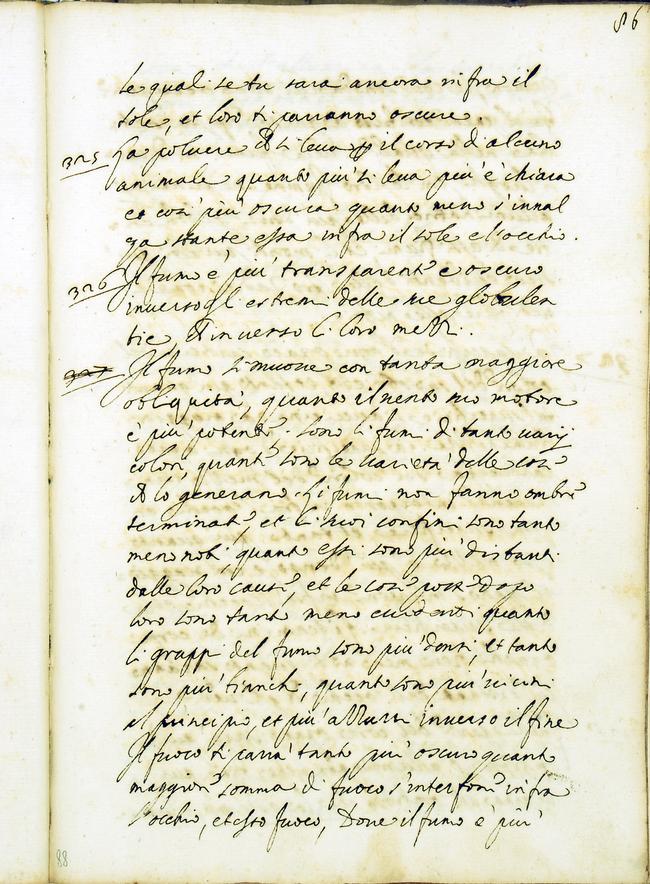 86
le quali se tu sarai ancora infra il
sole, et loro ti parranno oscure.
325 La polvere ch si leva p il corso di alcuno
animale quanto più si leva più è chiara
et così più oscura quanto meno s'innal
za stante essa infra il sole e l'occhio.
326 Il fumo è più transparente e oscuro
inverso gl' estremi delle sue globulen
tie, ch inverso li loro mezzi.
327 Il fumo si muove con tanta maggiore
obliquità, quanto il vento suo motore
è più potente. sono li fumi di tanti varij
colori, quante sono le varietà delle cose
ch lo generano. Li fumi non fanno ombre
terminate, et li suoi confini sono tanto
meno noti, quanto essi sono più distanti
dalle loro cause, et le cose poste dopo
loro sono tanto meno evidenti quanto
li gruppi del fumo sono più densi, et tanto
sono più bianchi, quanto sono più vicini
al principio, et più azzurri inverso il fine
Il fuoco ti parrà tanto più oscuro quanto
maggiore somma di fuoco s'interpone infra
l'occhio, et esso fuoco, Dove il fumo è più
88